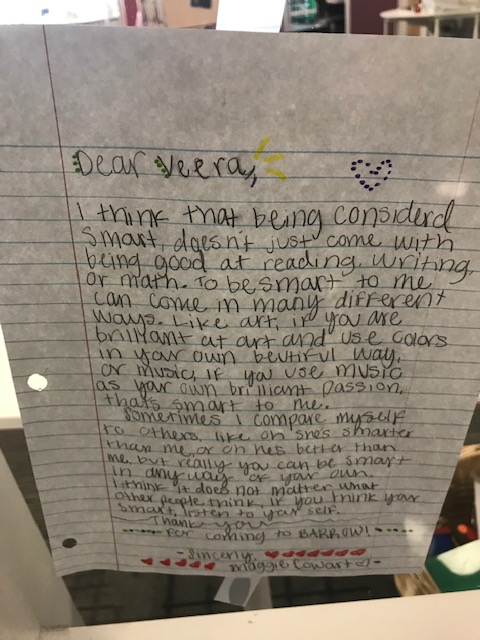 Dear Veera,
I think that being considerd
smart, doesn't just come with
being good at reading, writing,
or math. To be smart to me
can come in many different
ways. Like art, if you are
brilliant at art and use colors
in your own beutiful way,
or music, if you use music
as your own brilliant passion,
thats smart to me.
Sometimes I compare myself
to others, like oh she's smarter
than me, or oh hes better than
me, but really you can be smart
in any way of your own.
I think it does not matter what
other people think, if you think your
smart, listen to your self.
Thank you
for coming to BARROW!
-Sincerly,
Maggie Cowart =) -